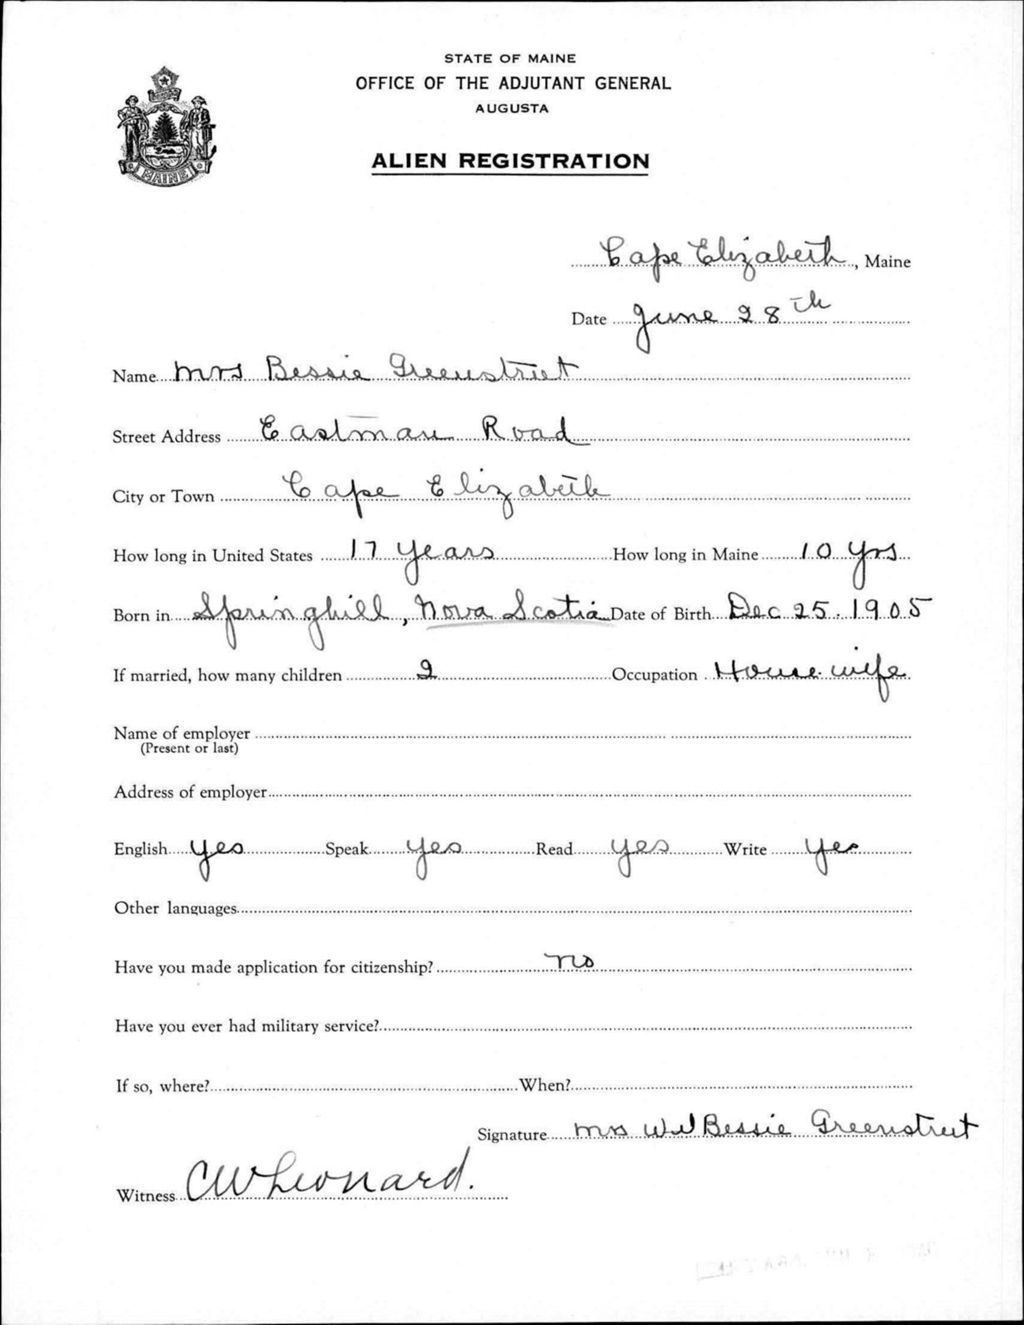 STATE OF MAINE
OFFICE OF THE ADJUTANT GENERAL
AUGUSTA
ALIEN REGISTRATION
MAINE
Cape Elizabeth, Maine
Date June 28th
Name Mrs Bessie Greenstreet
Street Address Eastman Road
City or Town Cape Elizabeth
How long in United States 17 years How long in Maine 10 yrs
Born in Springhill, Nova Scotia Date of Birth Dec 25. 1905
If married, how many children 2 Occupation House wife
Name of employer
(Present or last)
Address of employer
English yes Speak yes Read yes Write yes
Other languages
Have you made application for citizenship? no
Have you ever had military service?
If so, where? When?
Signature Mrs Bessie Greenstreet
Witness CW Leonard.